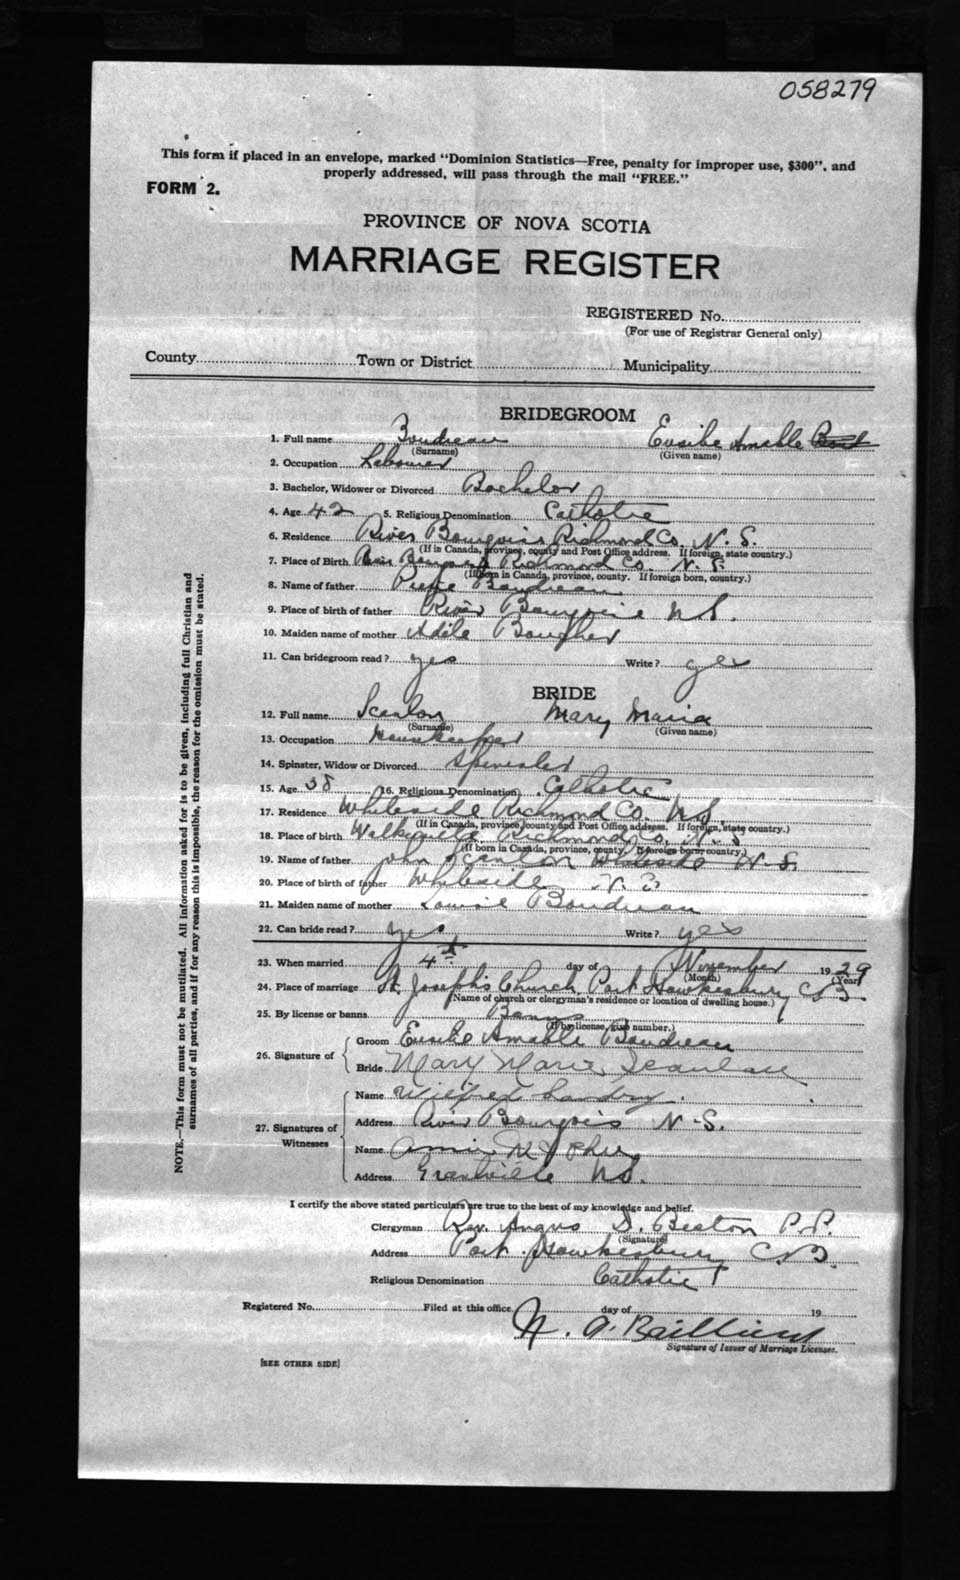 058279
This form if placed in an envelope, marked "Dominion Statistics—Free, penalty for improper use, $300", and
properly addressed, will pass through the mail "FREE."
FORM 2.
PROVINCE OF NOVA SCOTIA
MARRIAGE REGISTER
REGISTERED No.
(For use of Registrar General only)
County Town or District Municipality
BRIDEGROOM
1. Full name Boudreau Eusibe Amable
(Surname) (Given name)
2. Occupation Labourer
3. Bachelor, Widower or Divorced Bachelor
4. Age 42 5. Religious Denomination Catholic
6. Residence River Bourgeois Richmond Co. N. S.
(If in Canada, province, county and Post Office address. If foreign, state country.)
7. Place of Birth River Richmond Co. N. S.
(If born in Canada, province, county. If foreign born, country.)
8. Name of father Boudreau
9. Place of birth of father River N.S.
10. Maiden name of mother Adele
11. Can bridegroom read? yes Write? yes
BRIDE
12. Full name Scanlon Mary Maria
(Surname) (Given name)
13. Occupation Housekeeper
14. Spinster, Widow or Divorced Spinster
15. Age 38 16. Religious Denomination Catholic
17. Residence Whiteside Richmond Co. N.S.
(If in Canada, province, county and Post Office address. If foreign, state country.)
18. Place of birth Richmond Co. N. S.
(If born in Canada, province, county. If foreign born, country.)
19. Name of father John Scanlon Whiteside N. S.
20. Place of birth of father Whiteside N. S.
21. Maiden name of mother Boudreau
22. Can bride read? yes Write? yes
23. When married 4th day of November 1929
(Month) (Year)
24. Place of marriage St. Joseph's Church, Port Hawkesbury C.B.
(Name of church or clergyman's residence or location of dwelling house.)
25. By license or banns Banns
(If by license, give number.)
26. Signature of
Groom Eusibe Amable Boudreau
Bride Mary Marie Scanlan
27. Signatures of Witnesses
Name Wilfred Landry
Address River Bourgeois N.S.
Name
Address Grantville N.S.
I certify the above stated particulars are true to the best of my knowledge and belief.
Clergyman Rev. Angus D. Beaton P.P.
(Signature)
Address Port Hawkesbury C.B.
Religious Denomination Catholic
Registered No. Filed at this office day of 19
Signature of Issuer of Marriage Licenses.
[SEE OTHER SIDE]
NOTE.—This form must not be mutilated. All information asked for is to be given, including full Christian and
surnames of all parties, and if for any reason this is impossible, the reason for the omission must be stated.